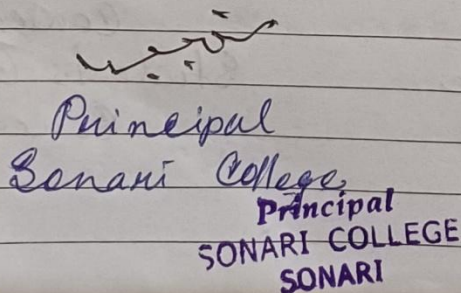 Principal
Sonari College
Principal
SONARI COLLEGE
SONARI